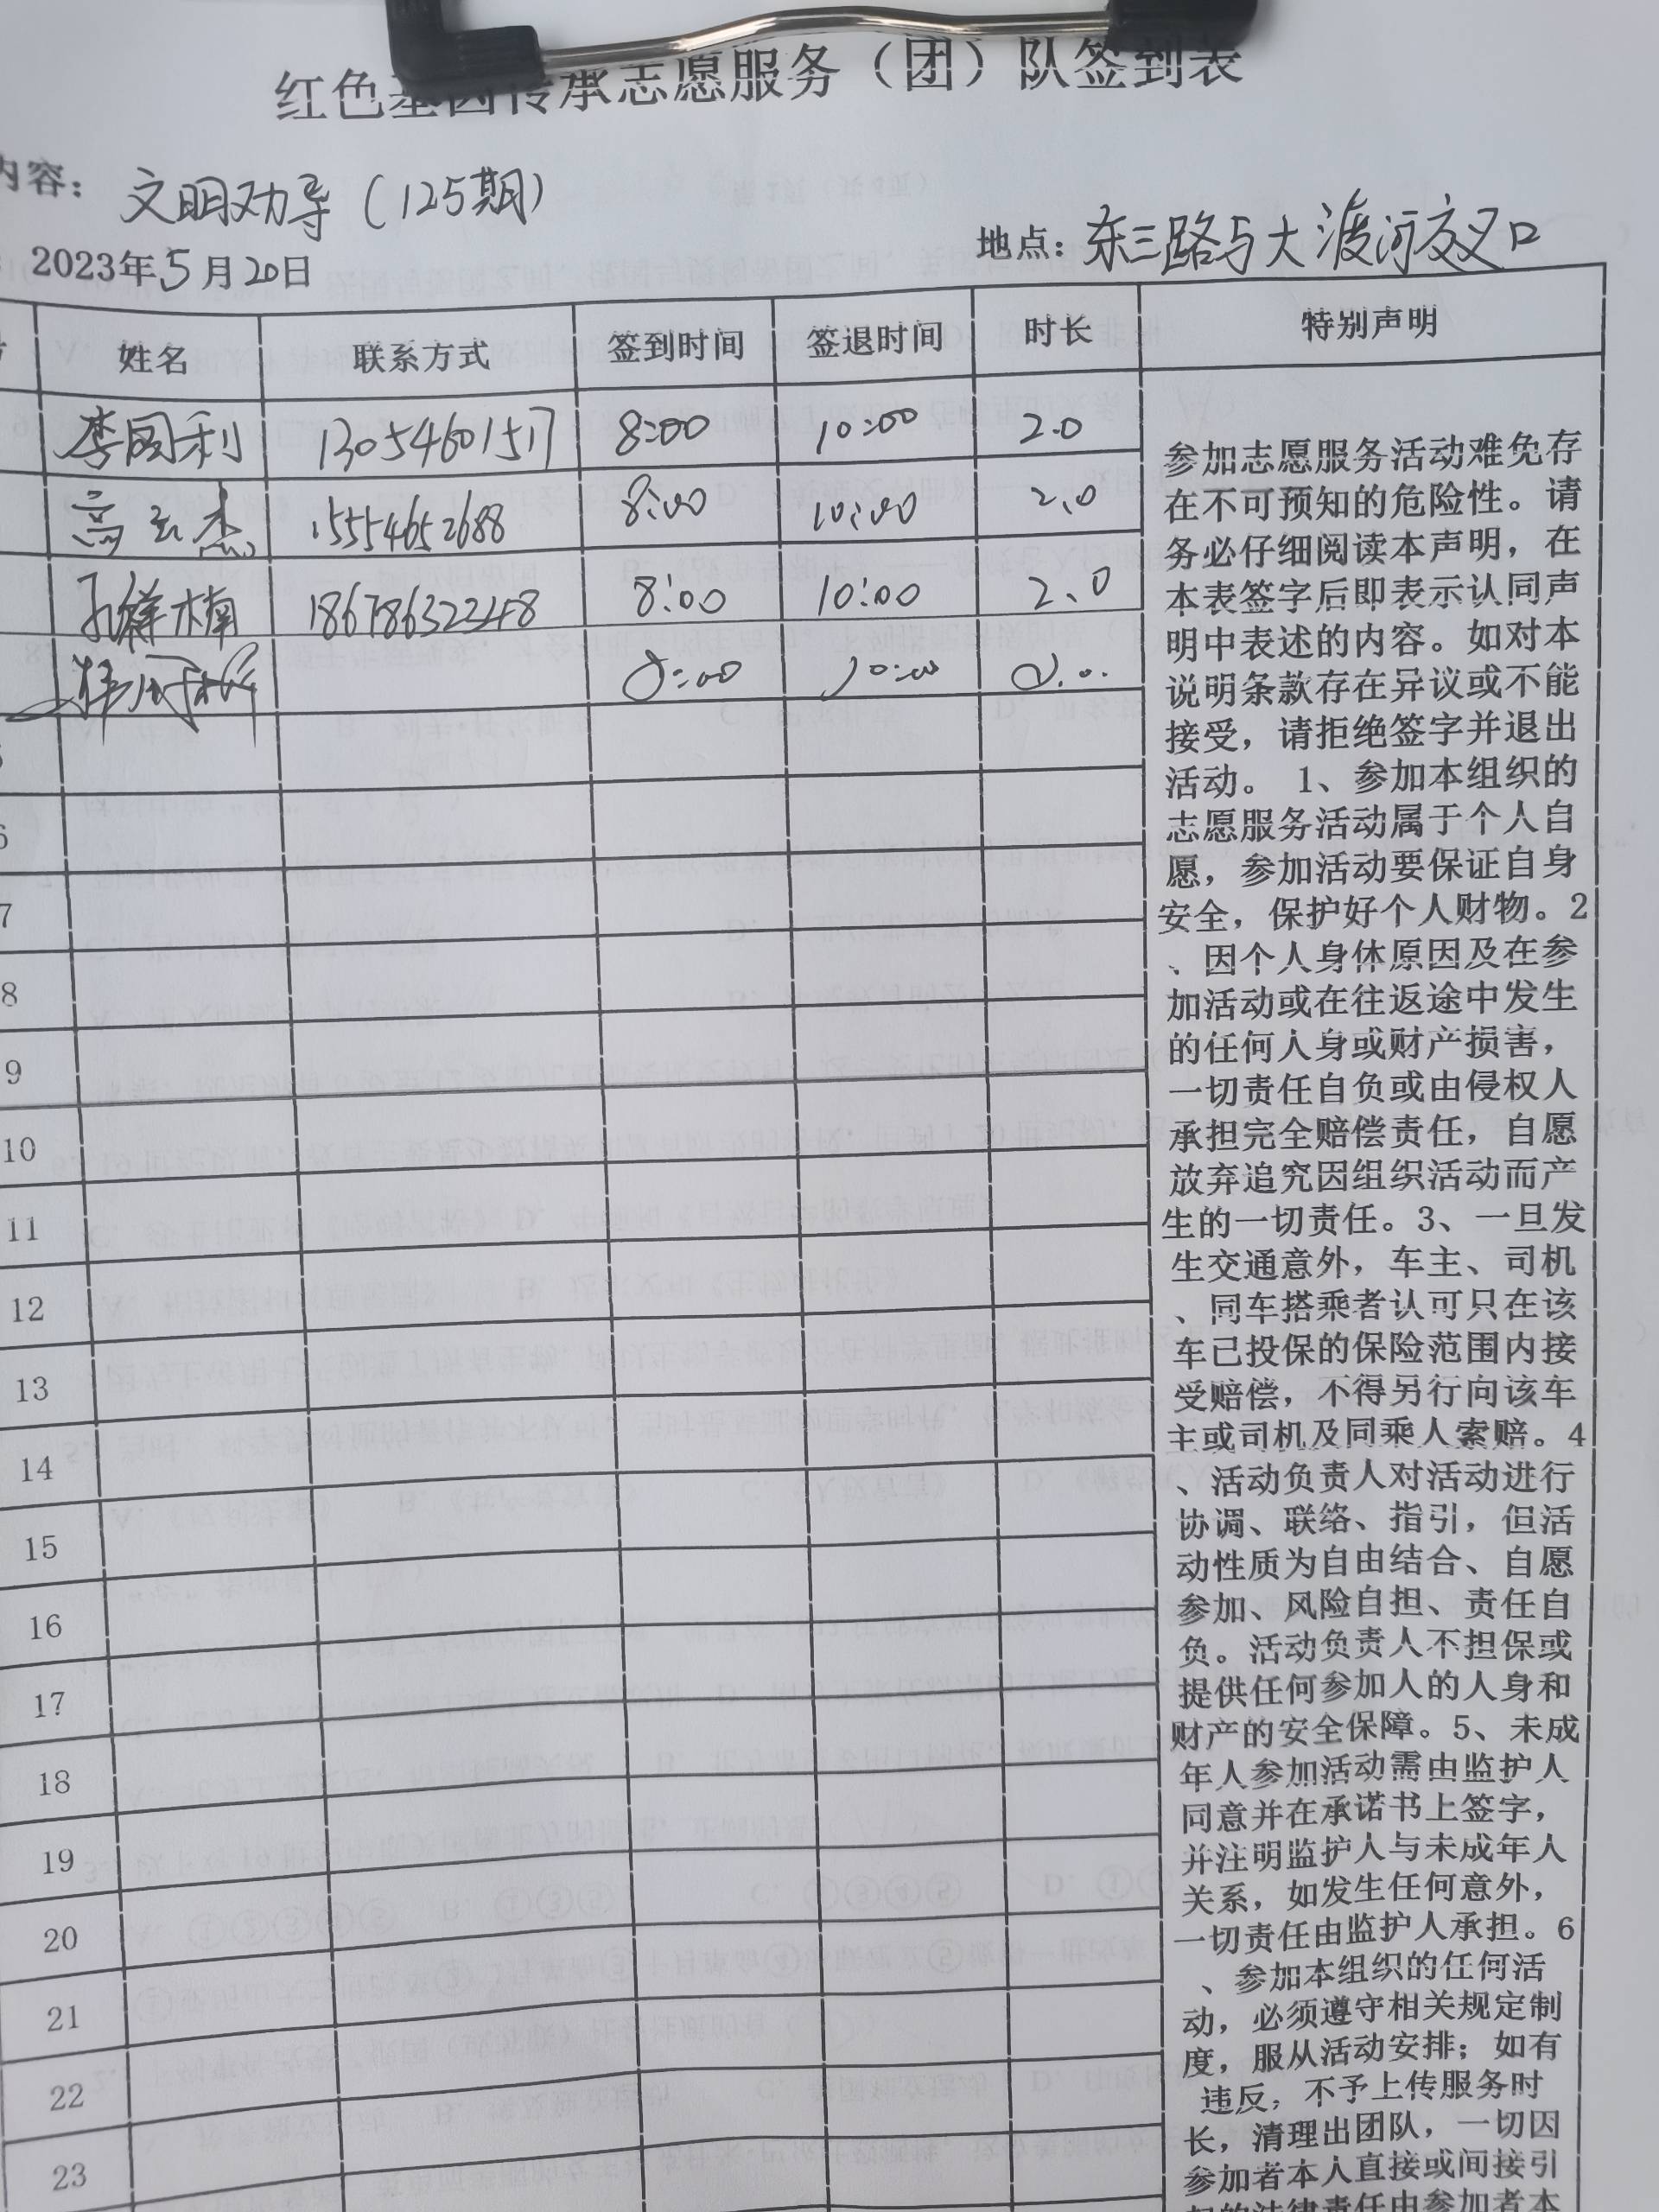 红色基因传承志愿服务（团）队签到表
内容： 文明劝导（125期）
2023年5月20日
地点：东三路与大渡河交叉口
姓名 联系方式 签到时间 签退时间 时长 特别声明
李国利 13054601517 8:00 10:00 2.0
高云杰 15554652688 8:00 10:00 2.0
孔祥楠 18678632248 8:00 10:00 2.0
8:00 10:00 2.0
6
7
8
9
10
11
12
13
14
15
16
17
18
19
20
21
22
23
参加志愿服务活动难免存
在不可预知的危险性。请
务必仔细阅读本声明，在
本表签字后即表示认同声
明中表述的内容。如对本
说明条款存在异议或不能
接受，请拒绝签字并退出
活动。 1、参加本组织的
志愿服务活动属于个人自
愿，参加活动要保证自身
安全，保护好个人财物。2
、因个人身体原因及在参
加活动或在往返途中发生
的任何人身或财产损害，
一切责任自负或由侵权人
承担完全赔偿责任，自愿
放弃追究因组织活动而产
生的一切责任。3、一旦发
生交通意外，车主、司机
、同车搭乘者认可只在该
车已投保的保险范围内接
受赔偿，不得另行向该车
主或司机及同乘人索赔。4
、活动负责人对活动进行
协调、联络、指引，但活
动性质为自由结合、自愿
参加、风险自担、责任自
负。活动负责人不担保或
提供任何参加人的人身和
财产的安全保障。5、未成
年人参加活动需由监护人
同意并在承诺书上签字，
并注明监护人与未成年人
关系，如发生任何意外，
一切责任由监护人承担。6
、参加本组织的任何活
动，必须遵守相关规定制
度，服从活动安排；如有
违反，不予上传服务时
长，清理出团队，一切因
参加者本人直接或间接引
起的法律责任由参加者本